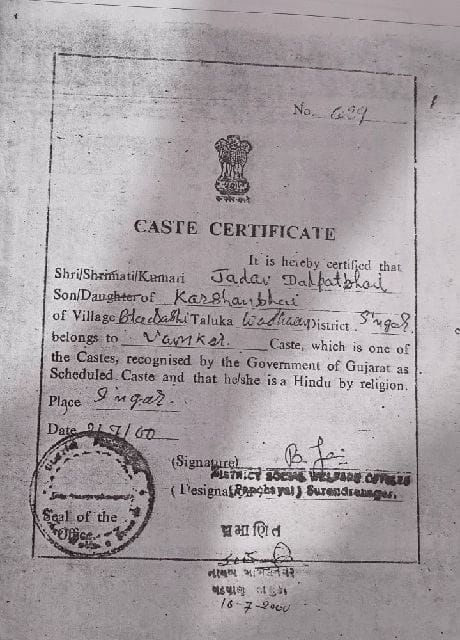 No. 639
CASTE CERTIFICATE
It is hereby certified that
Shri/Shrimati/Kumari Jadav Dalpatbhai
Son/Daughter of Karshanbhai
of Village Taluka Wadhwan District S'ngar
belongs to Vanker Caste, which is one of
the Castes, recognised by the Government of Gujarat as
Scheduled Caste and that he/she is a Hindu by religion.
Place S'ngar.
Date
(Signature)
DISTRICT SOCIAL WELFARE
(Designat (Panchayat) Surendranagar.
Seal of the
Office.
પ્રમાણિત
નાયબ મામલતદાર
16-7-2000